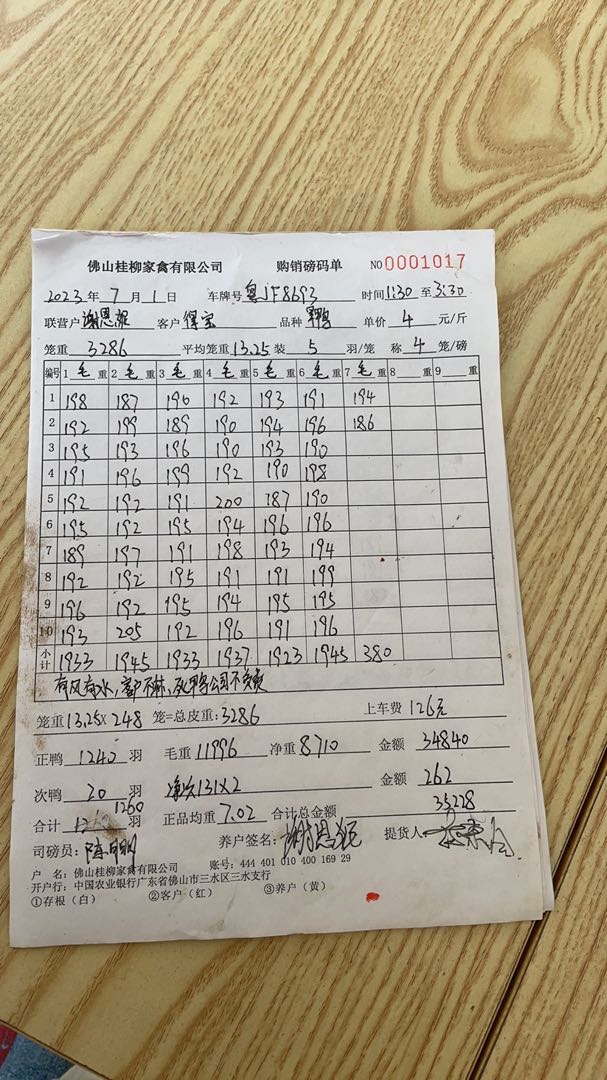 佛山桂柳家禽有限公司 购销磅码单 NO 0001017
2023年 7月 1日 车牌号 粤JF8693 时间 1:30 至 3:30
联营户 谢恩妮 客户 得宝 品种 单价 4 元/斤
笼重 3286 平均笼重 13.25 装 5 羽/笼 称 4 笼/磅
编号 1 毛重 2 毛重 3 毛重 4 毛重 5 毛重 6 毛重 7 毛重 8 重 9 重
1 198 187 190 192 193 191 194
2 192 199 189 190 194 196 186
3 195 193 196 190 193 190
4 191 196 199 192 190 198
5 192 192 191 200 187 190
6 195 192 195 194 196 196
7 189 197 191 198 193 194
8 192 192 195 191 191 199
9 196 192 195 194 195 195
10 193 205 192 196 191 196
小计 1933 1945 1933 1937 1923 1945 380
有风有水,客户不淋,死鸭公司不负责
笼重 13.25 × 248 笼=总皮重: 3286 上车费 126元
正鸭 1240 羽 毛重 11996 净重 8710 金额 34840
次鸭 20 羽 净次131×2 金额 262
合计 1260 羽 正品均重 7.02 合计总金额 35228
司磅员: 养户签名: 谢恩妮 提货人
户 名: 佛山桂柳家禽有限公司 账号: 444 401 010 400 169 29
开户行: 中国农业银行广东省佛山市三水区三水支行
①存根(白) ②客户(红) ③养户(黄)